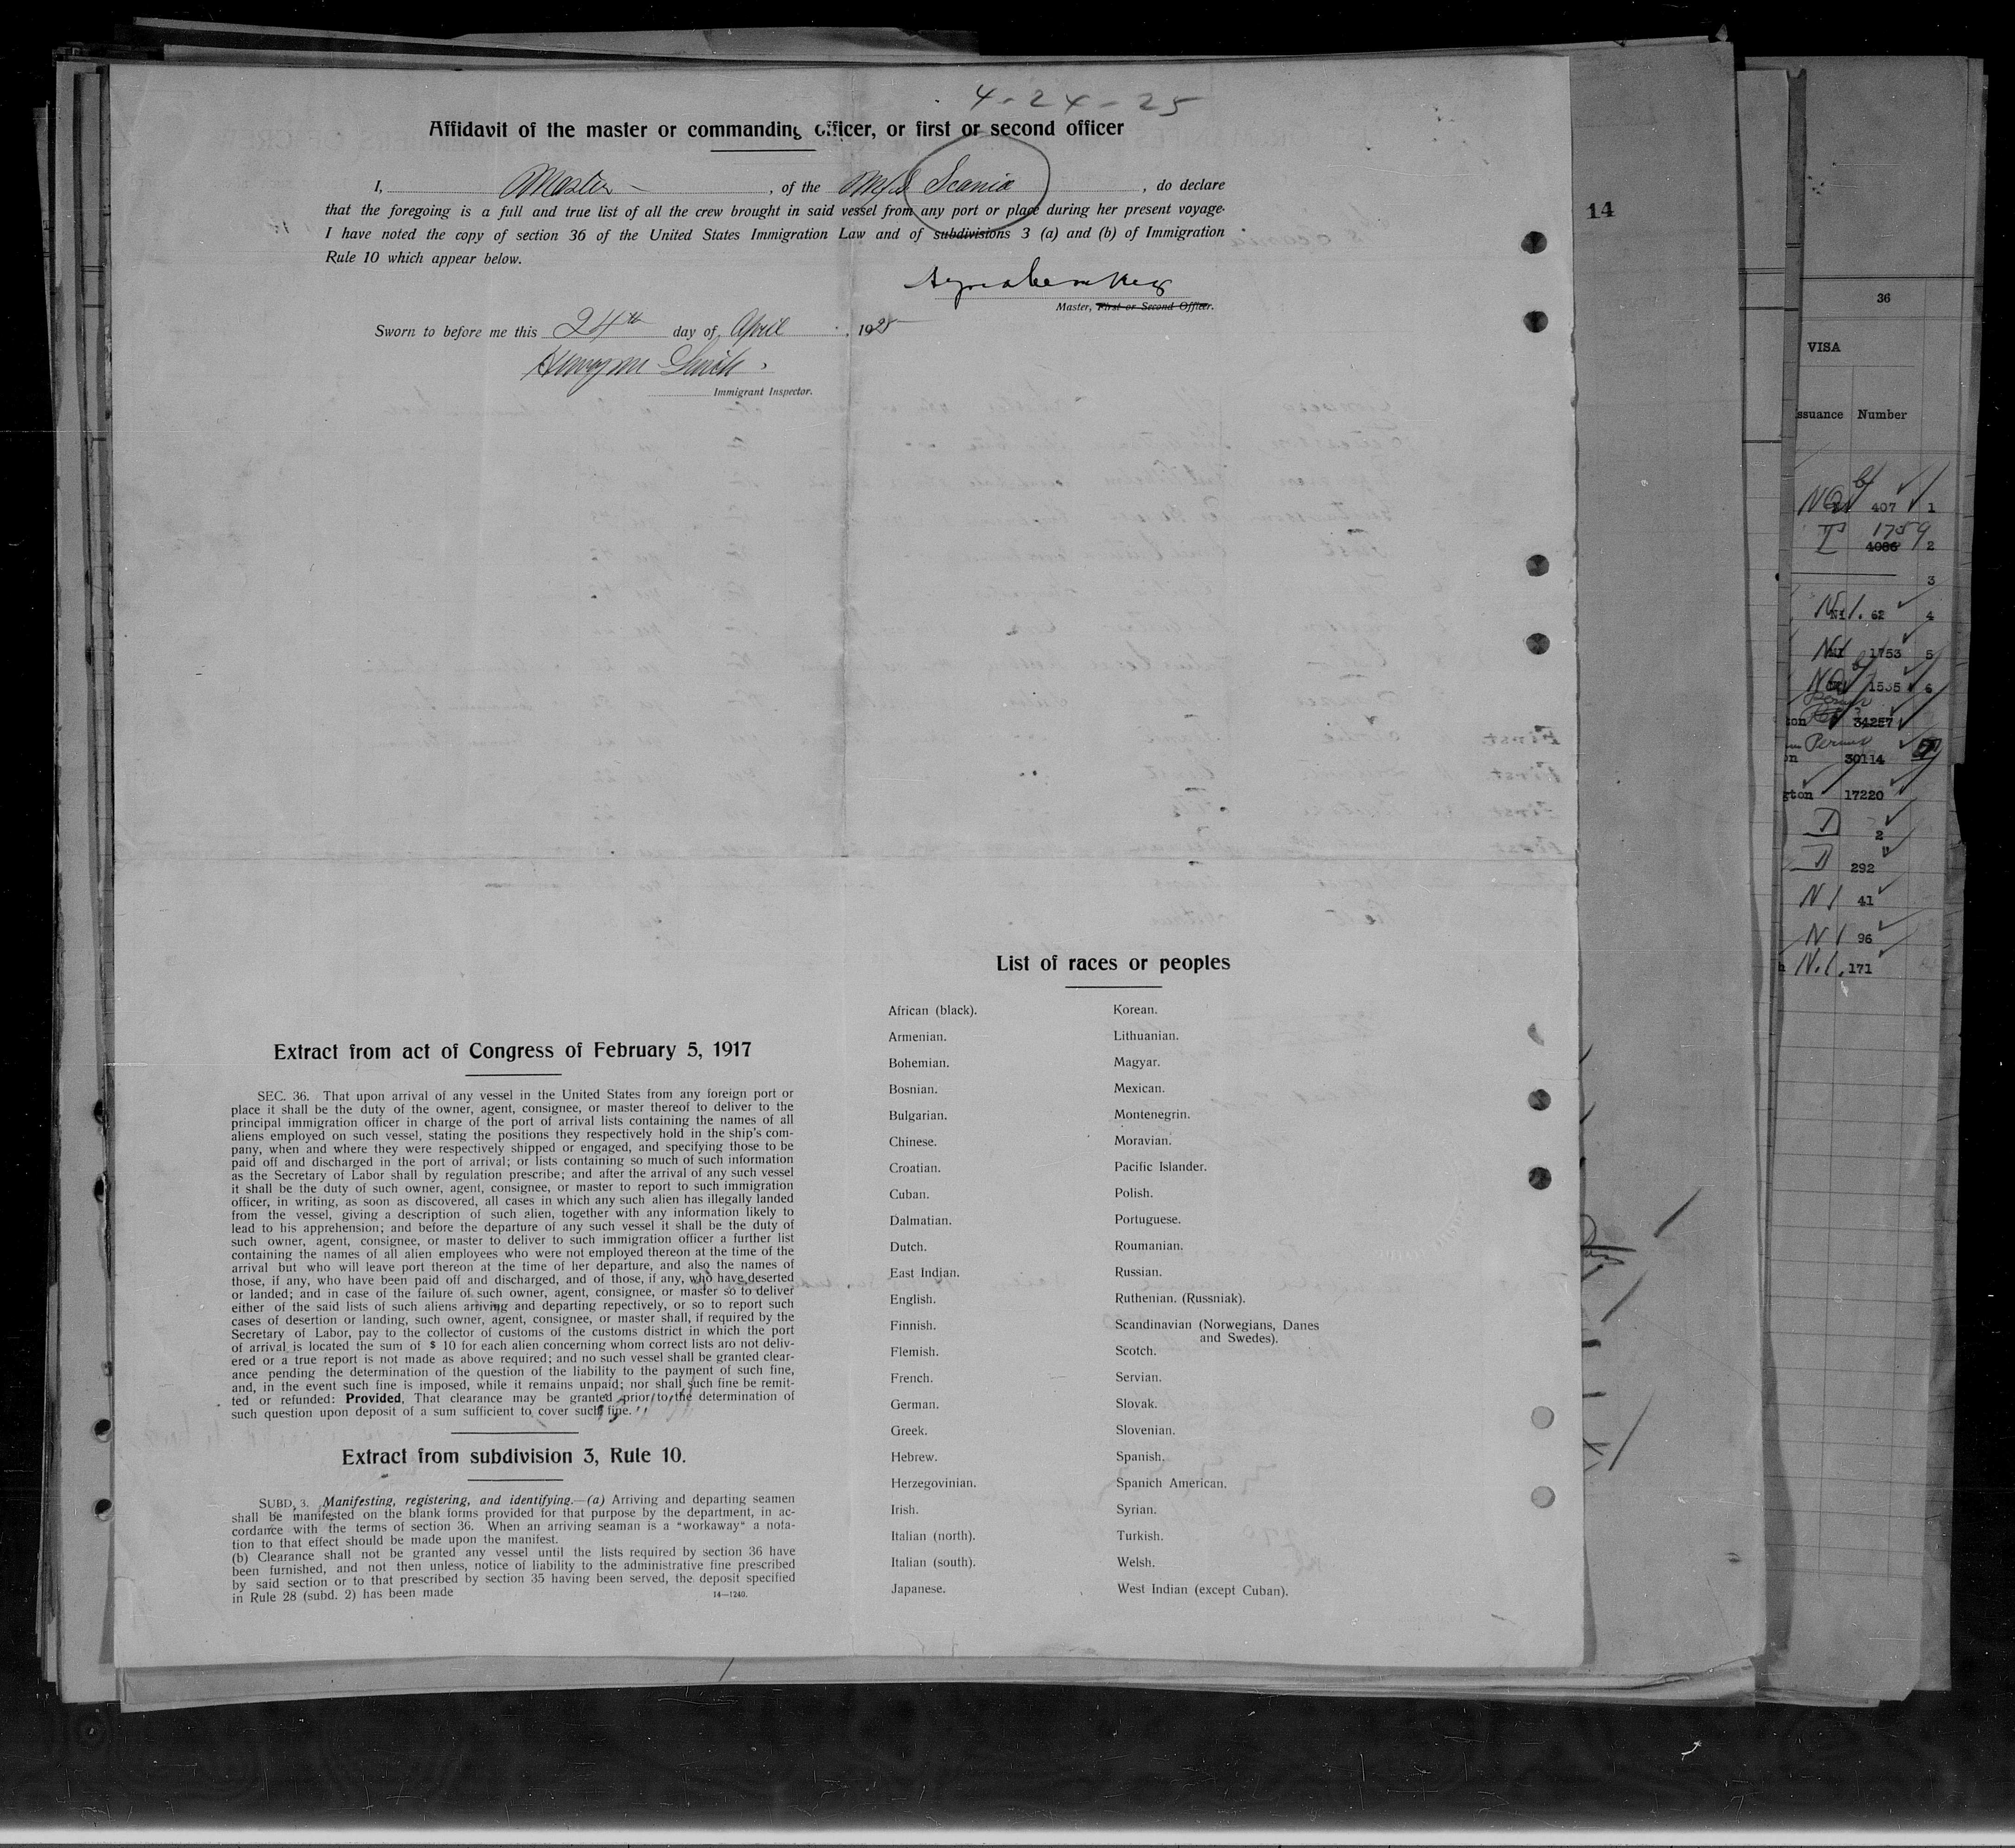 4-24-25
Affidavit of the master or commanding officer, or first or second officer
I, Master , of the M/S Scania , do declare
that the foregoing is a full and true list of all the crew brought in said vessel from any port or place during her present voyage.
I have noted the copy of section 36 of the United States Immigration Law and of subdivisions 3 (a) and (b) of Immigration
Rule 10 which appear below.
Master, First or Second Officer.
Sworn to before me this 24th day of April , 1925
Smith
Immigrant Inspector.
Extract from act of Congress of February 5, 1917
SEC. 36. That upon arrival of any vessel in the United States from any foreign port or
place it shall be the duty of the owner, agent, consignee, or master thereof to deliver to the
principal immigration officer in charge of the port of arrival lists containing the names of all
aliens employed on such vessel, stating the positions they respectively hold in the ship's com-
pany, when and where they were respectively shipped or engaged, and specifying those to be
paid off and discharged in the port of arrival; or lists containing so much of such information
as the Secretary of Labor shall by regulation prescribe; and after the arrival of any such vessel
it shall be the duty of such owner, agent, consignee, or master to report to such immigration
officer, in writing, as soon as discovered, all cases in which any such alien has illegally landed
from the vessel, giving a description of such alien, together with any information likely to
lead to his apprehension; and before the departure of any such vessel it shall be the duty of
such owner, agent, consignee, or master to deliver to such immigration officer a further list
containing the names of all alien employees who were not employed thereon at the time of the
arrival but who will leave port thereon at the time of her departure, and also the names of
those, if any, who have been paid off and discharged, and of those, if any, who have deserted
or landed; and in case of the failure of such owner, agent, consignee, or master so to deliver
either of the said lists of such aliens arriving and departing repectively, or so to report such
cases of desertion or landing, such owner, agent, consignee, or master shall, if required by the
Secretary of Labor, pay to the collector of customs of the customs district in which the port
of arrival is located the sum of $ 10 for each alien concerning whom correct lists aro not deliv-
ered or a true report is not made as above required; and no such vessel shall be granted clear-
ance pending the determination of the question of the liability to the payment of such fine,
and, in the event such fine is imposed, while it remains unpaid; nor shall such fine be remit-
ted or refunded: Provided, That clearance may be granted prior to the determination of
such question upon deposit of a sum sufficient to cover such fine.
Extract from subdivision 3, Rule 10.
SUBD, 3. Manifesting, registering, and identifying.—(a) Arriving and departing seamen
shall be manifested on the blank forms provided for that purpose by the department, in ac-
cordance with the terms of section 36. When an arriving seaman is a "workaway" a nota-
tion to that effect should be made upon the manifest.
(b) Clearance shall not be granted any vessel until the lists required by section 36 have
been furnished, and not then unless, notice of liability to the administrative fine prescribed
by said section or to that prescribed by section 35 having been served, the deposit specified
in Rule 28 (subd. 2) has been made
14—1240.
List of races or peoples
African (black).
Armenian.
Bohemian.
Bosnian.
Bulgarian.
Chinese.
Croatian.
Cuban.
Dalmatian.
Dutch.
East Indian.
English.
Finnish.
Flemish.
French.
German.
Greek.
Hebrew.
Herzegovinian.
Irish.
Italian (north).
Italian (south).
Japanese.
Korean.
Lithuanian.
Magyar.
Mexican.
Montenegrin.
Moravian.
Pacific Islander.
Polish.
Portuguese.
Roumanian.
Russian.
Ruthenian. (Russniak).
Scandinavian (Norwegians, Danes
and Swedes).
Scotch.
Servian.
Slovak.
Slovenian.
Spanish.
Spanich American.
Syrian.
Turkish.
Welsh.
West Indian (except Cuban).
14
36
VISA
ssuance Number
407 1
1759
4086 2
3
62 4
1753 5
1535 6
ton 34257
Permit
30114
gton 17220
2
292
N I 41
N I 96
N.I. 171